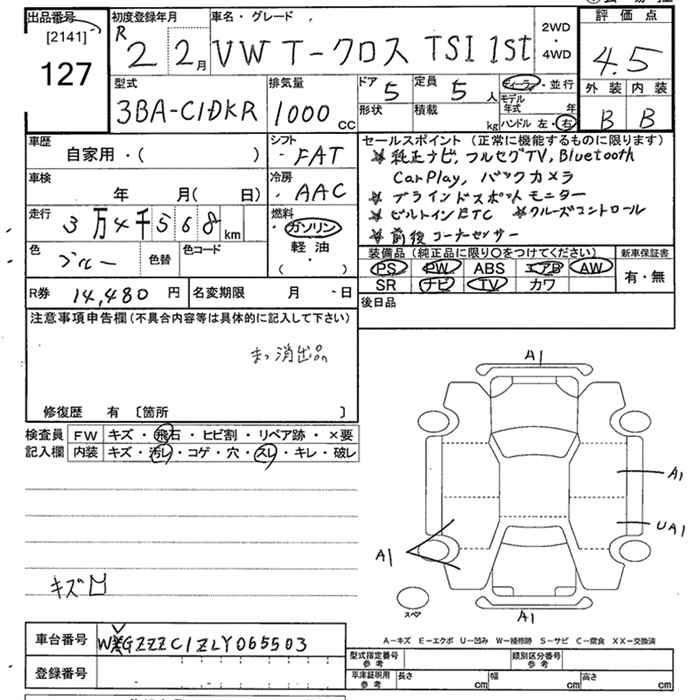 出品番号
[2141]
127
初度登録年月
R 2 2月
車名・グレード
VW T-クロス TSI 1st
2WD
・
4WD
評価点
4.5
外装 内装
B B
型式
3BA-C1DKR
排気量
1000 cc
ドア 5
定員 5 人
形状
積載 kg
ディーラー・並行
モデル年式 年
ハンドル 左・右
車歴
自家用・( )
シフト
・FAT
車検
年 月( 日)
冷房
・AAC
走行
3万4千568km
燃料
・ガソリン
軽油
( ・ )
色
ブルー
色替
色コード
セールスポイント (正常に機能するものに限ります)
純正ナビ, フルセグTV, Bluetooth
CarPlay, バックカメラ
ブラインドスポットモニター
ビルトインETC クルーズコントロール
前後コーナーセンサー
装備品(純正品に限り○をつけてください)
PS PW ABS エアB AW
SR ナビ TV カワ
新車保証書
有・無
R券 14,480 円
名変期限 月 - 日
後日品
注意事項申告欄(不具合内容等は具体的に記入して下さい)
修復歴 有 〔箇所 〕
検査員
記入欄
FW キズ・飛石・ヒビ割・リペア跡・×要
内装 キズ・汚レ・コゲ・穴・スレ・キレ・破レ
キズ凹
A1
A1
UA1
A1
スペア
A1
A-キズ E-エクボ U-凹み W-補修跡 S-サビ C-腐食 XX-交換済
車台番号
GZZZC1ZLY065503
登録番号
型式指定番号
参考
類別区分番号
参考
車庫証明用
参考
長さ cm
幅 cm
高さ cm